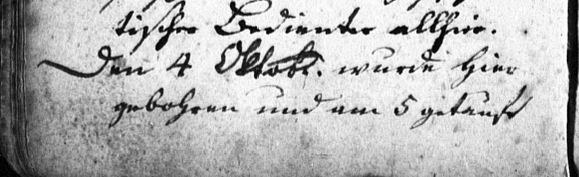 tischer Bedienter allhier.
Den 4 Oktobr. wurde hier
gebohren und am 5 getauft